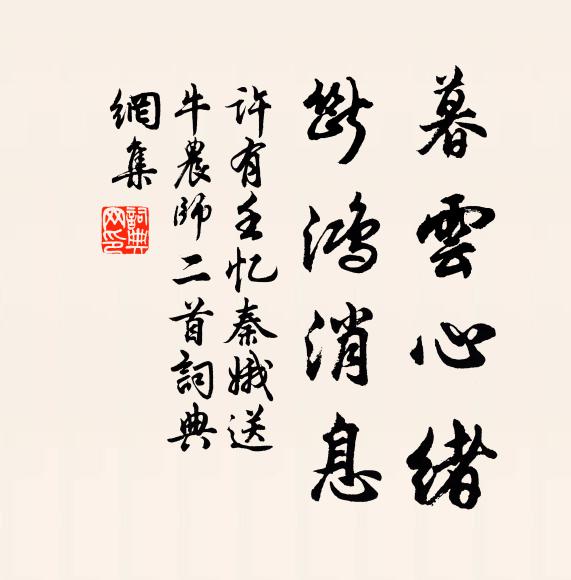 暮雲心緒
斷鴻消息
許有壬忆秦娥送
牛農師二首詞典
網集
詞典網印